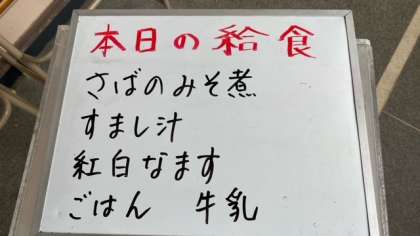 本日の給食
さばのみそ煮
すまし汁
紅白なます
ごはん 牛乳